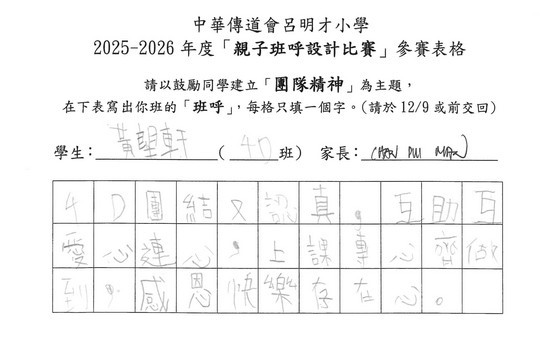 中華傳道會呂明才小學
2025-2026 年度「親子班呼設計比賽」參賽表格
請以鼓勵同學建立「團隊精神」為主題，
在下表寫出你班的「班呼」，每格只填一個字。（請於 12/9 或前交回）
學生：黃望軒（4D班） 家長：CHAN PUI MAN
4D團結又認真，互助互
愛心連心，上課專心齊做
到，感恩快樂存在心。